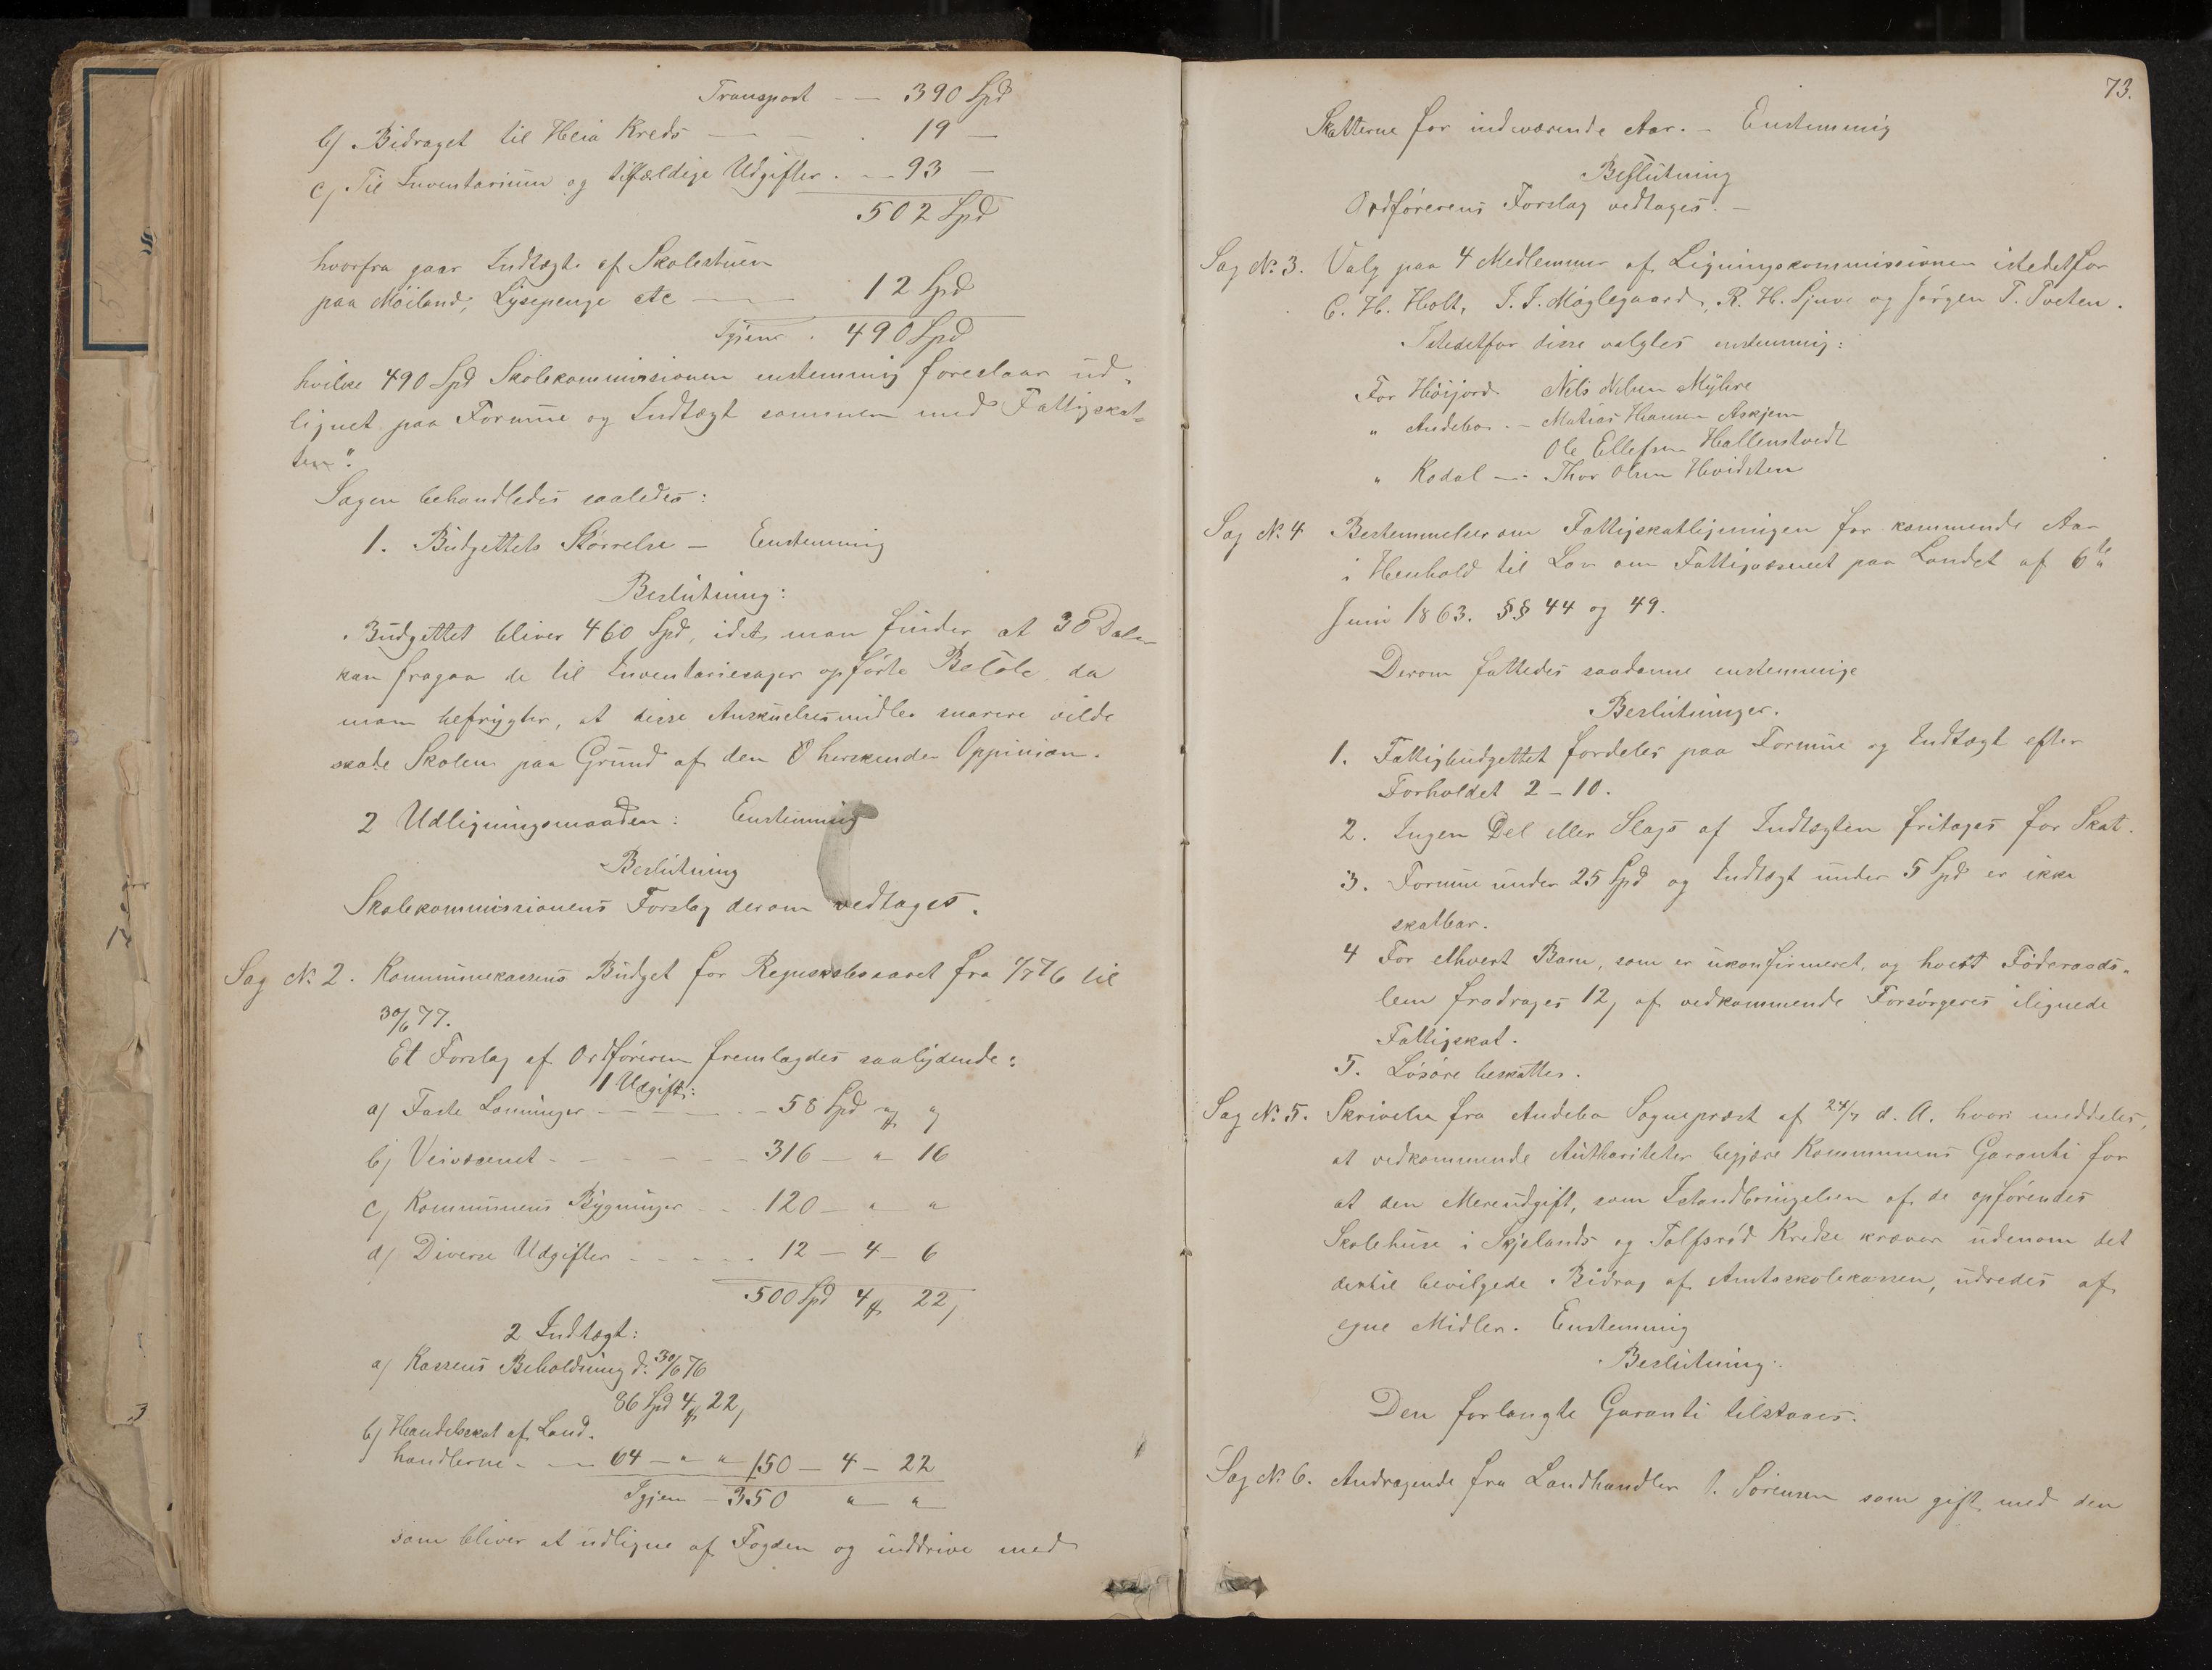 Transport — — 390 Spd
b) Bidraget til Heia Kreds — — . 19 —
c) Til Inventarium og tilfældige Udgifter . — 93 —
502 Spd
hvorfra gaar Indtægt af Skolestuen
paa Møiland, Lysepenge etc — — 12 Spd
Igjen . 490 Spd
hvilke 490 Spd Skolekommissionen enstemmig foreslaar ud-
lignet paa Formue og Indtægt sammen med Fattigskat-
ten".
Sagen behandledes saaledes:
1. Budgettets Størrelse — Enstemmig
Beslutning:
Budgettet bliver 460 Spd, idet man finder at 30 Daler
kan fragaa de til Inventariesager opførte Beløb, da
man befrygter, at disse Anskuelsesmidler snarere vilde
skade Skolen paa Grund af den herskende Oppinion.
2 Udligningsmaaden: Enstemmig
Beslutning
Skolekommissionens Forslag derom vedtages.
Sag No. 2. Kommunekassens Budget for Regnskabsaaret fra 1/7 76 til
30/6 77.
Et Forslag af Ordføreren fremlagdes saalydende:
1 Udgift:
a) Faste Lønninger — — — 58 Spd " "
b) Veivæsenet — — — — 316 — " 16
c) Kommunens Bygninger — — 120 — " "
d) Diverse Udgifter — — — 12 — 4 — 6
500 Spd 4 22
2 Indtægt:
a) Kassens Beholdning d. 30/6 76
86 Spd 4 22
b) Handelsskat af Land-
handlerne — — 64 — " " 150 — 4 — 22
Igjen — 350 " "
som bliver at udligne af Fogden og inddrive med
73.
Skatterne for indværende Aar. — Enstemmig
Beslutning
Ordførerens Forslag vedtages. —
Sag No. 3. Valg paa 4 Medlemmer af Ligningskommissionen istedetfor
C. H. Holt, J. J. Møglegaard, R. H. Ljuve og Jørgen T. Tveten.
Istedetfor disse valgtes enstemmig:
For Høijord. Nils Nilsen Myhre
" Andebo. — Matias Hansen Askjem
Ole Ellefsen Hallenstvedt
" Kodal — Thor Olsen Hvidsten
Sag No. 4 Bestemmelser om Fattigskatligningen for kommende Aar
i Henhold til Lov om Fattigvæsenet paa Landet af 6te
Juni 1863. §§ 44 og 49.
Derom fattedes saadanne enstemmige
Beslutninger.
1. Fattigbudgettet fordeles paa Formue og Indtægt efter
Forholdet 2 – 10.
2. Ingen Del eller Slags af Indtægten fritages for Skat.
3. Formue under 25 Spd og Indtægt under 5 Spd er ikke
skatbar.
4 For ethvert Barn, som er ukonfirmeret, og hvert Føderaads-
lem fradrages 12 af vedkommende Forsørgeres ilignede
Fattigskat.
5. Løsøre beskattes.
Sag No. 5. Skrivelse fra Andebo Sognepræst af 24/7 d. A. hvori meddeles,
at vedkommende Authoriteter begjære Kommunens Garanti for
at den Merudgift, som Istandbringelsen af de opførendes
Skolehuse i Skjelands og Tolfsrød Kredse kræver udenom det
dertil bevilgede Bidrag af Amtsskolekassen, udredes af
egne Midler. Enstemmig
Beslutning.
Den forlangte Garanti tilstaaes.
Sag No. 6. Andragende fra Landhandler Sørensen som gift med den